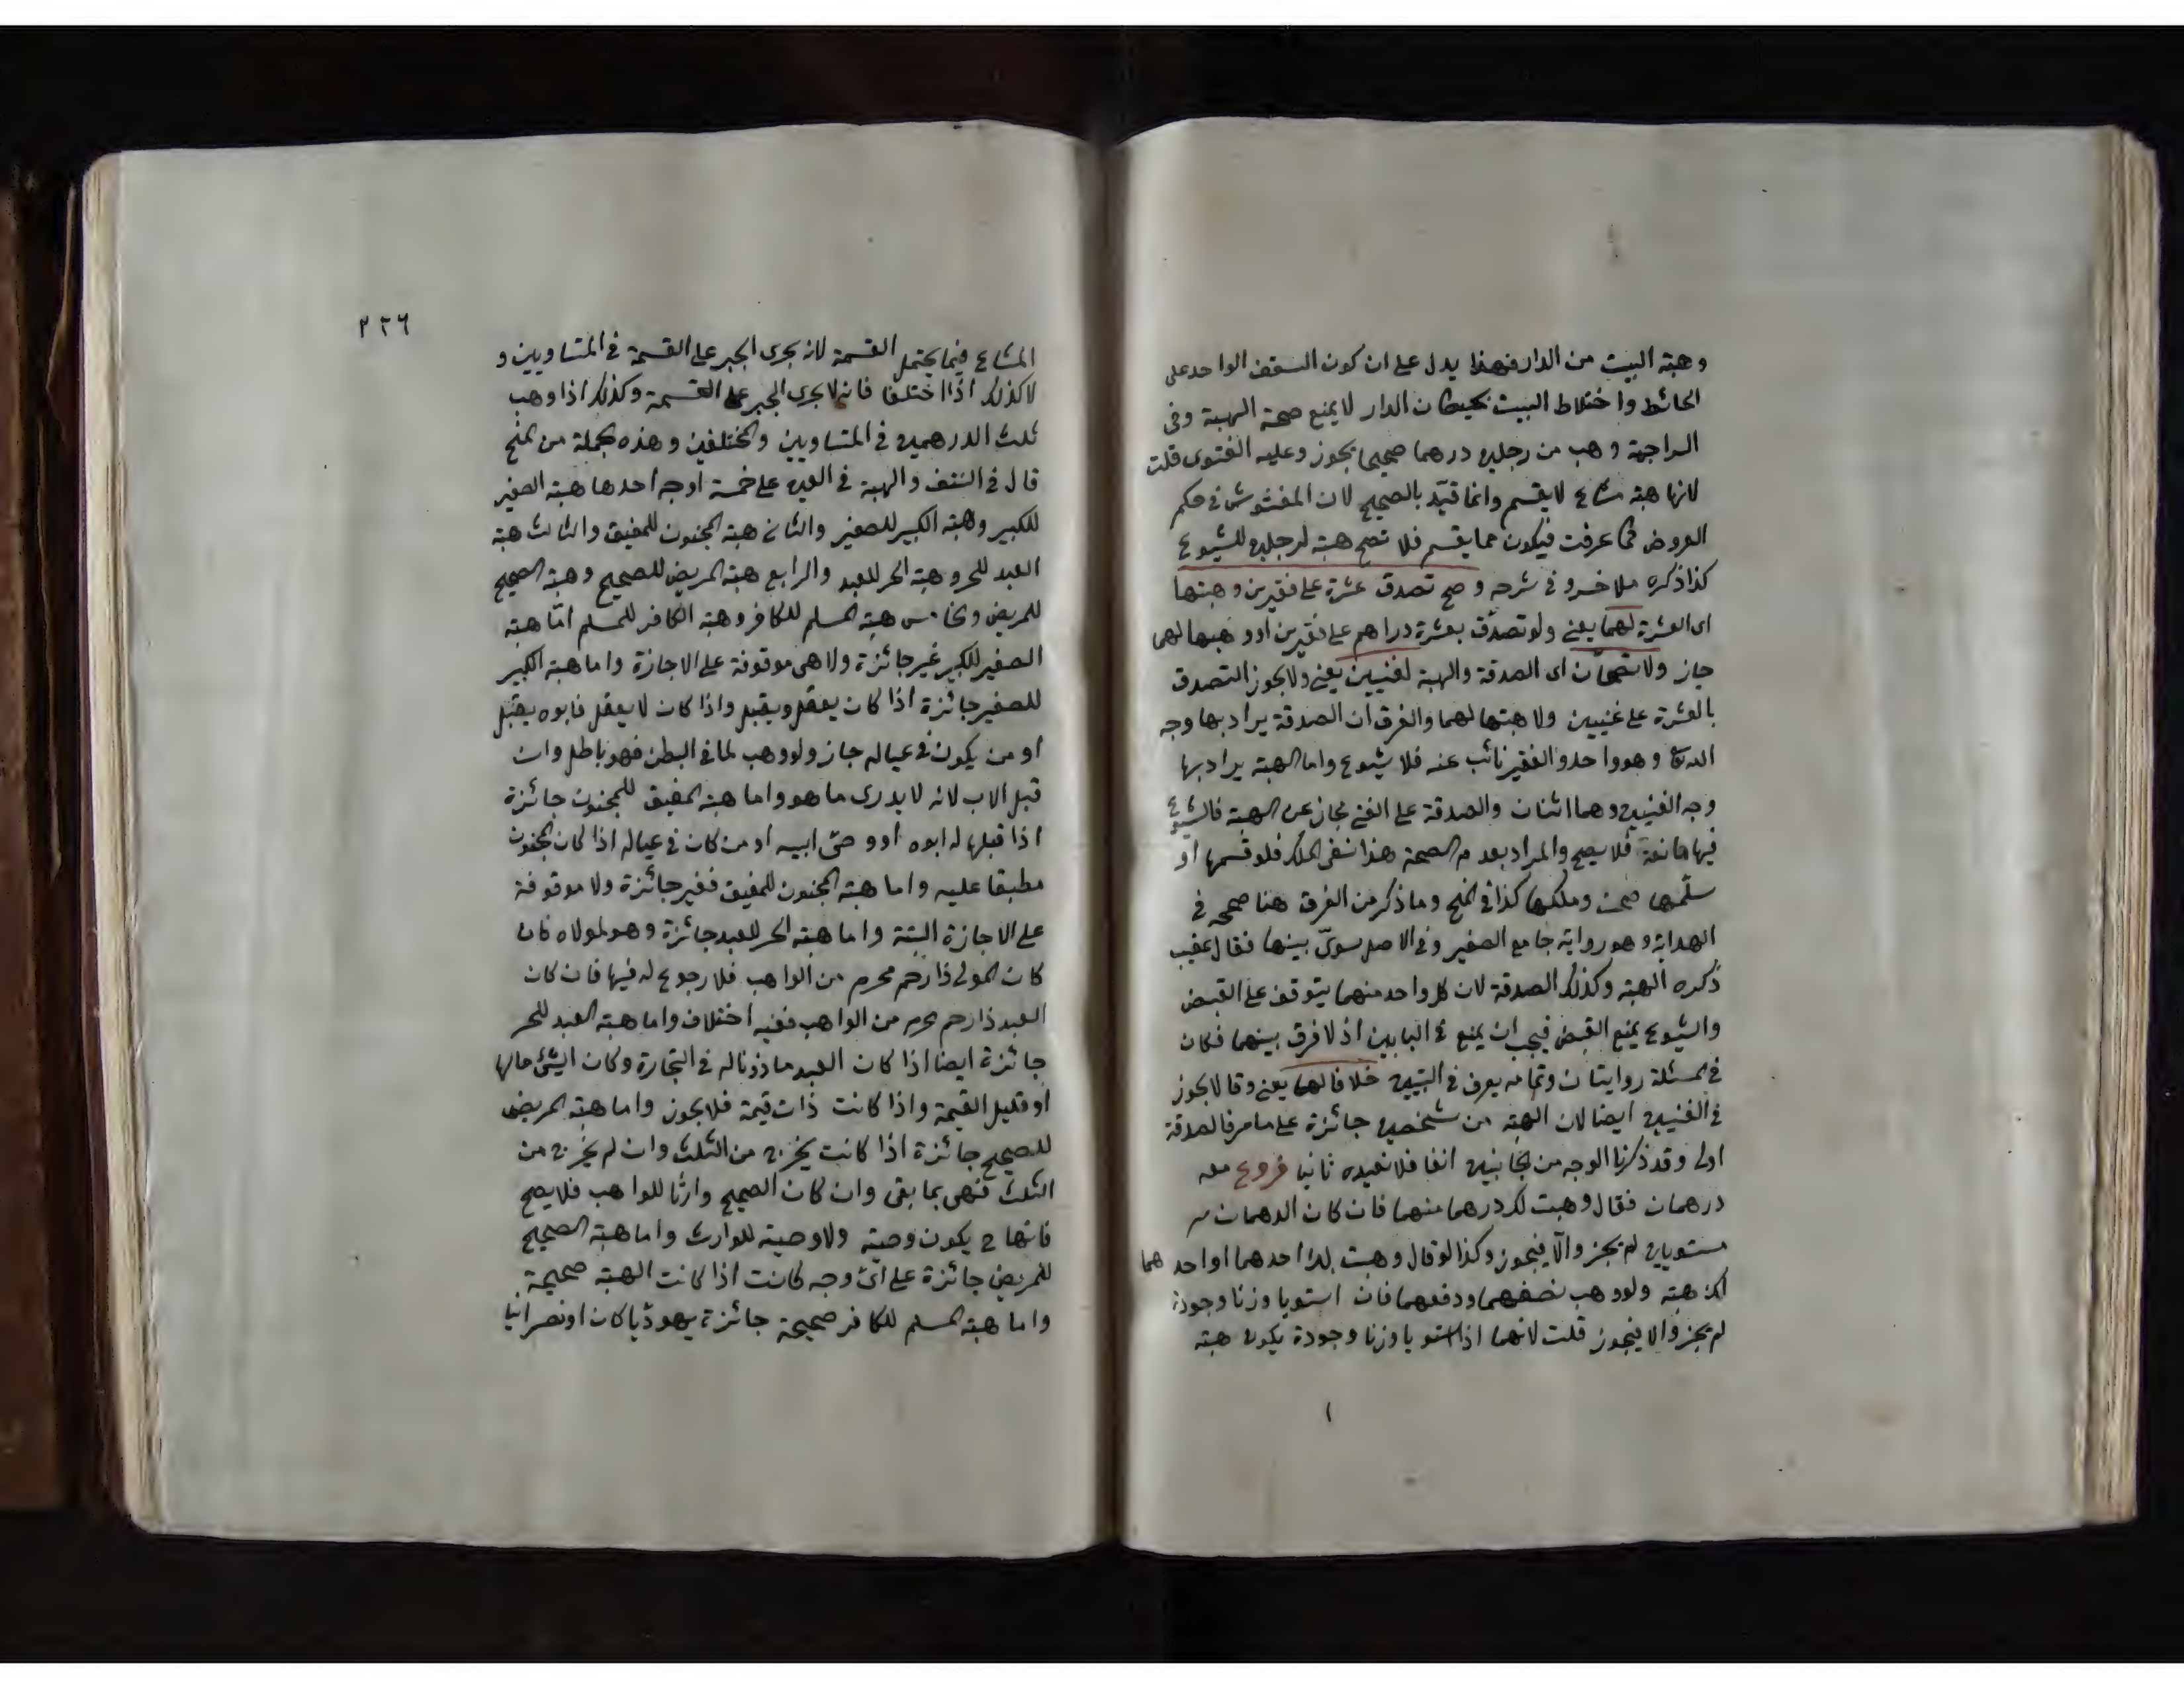 وهبة البيت من الدار فهذا يدل على ان كون السقف الواحد على
الحائط واختلاط البيت بحيطان الدار لا يمنع صحة الهبة وفى
السراجية وهب من رجلين درهما صحيحا يجوز وعليه الفتوى قلت
لانها هبة مشاع لا يقسم وانما قيّد بالصحيح لان المغشوش فى حكم
العروض كما عرفت فيكون مما يقسم فلا تصح هبته لرجلين للشيوع
كذا ذكره ملا خسرو فى شرحه وصح تصدق عشرة على فقيرين وهبتها
اى العشرة لهما يعنى ولو تصدّق بعشرة دراهم على فقيرين او وهبها لهما
جاز ولا تصحّان اى الصدقة والهبة لغنيين يعنى ولا يجوز التصدق
بالعشرة على غنيين ولا هبتها لهما والفرق ان الصدقة يراد بها وجه
الله تعا وهو واحد والفقير نائب عنه فلا شيوع واما الهبة يراد بها
وجه الغنيين وهما اثنان والصدقة على الغنى مجاز عن الهبة فالشيوع
فيها مانعة فلا يصح والمراد بعدم الصحة هذا نفى الملك فلو قسمها او
سلّمها صحت وملكها كذا فى المنح وما ذكر من الفرق هنا صححه فى
الهداية وهو رواية جامع الصغير وفى الاصل سوىّ بينها فقال عقيب
ذكره الهبة وكذلك الصدقة لان كل واحد منهما يتوقف على القبض
والشيوع يمنع القبض فيجب ان يمنع فى البابين اذ لا فرق بينهما فكان
فى المسئلة روايتان وتمامه يعرف فى التبيين خلافا لهما يعنى وقالا يجوز
فى الغنيين ايضا لان الهبة من شخصين جائزة على ما مر فالصدقة
اولى وقد ذكرنا الوجه من الجانبين انفا فلا نعيده ثانيا فروع معه
درهمان فقال وهبت لك درهما منهما فان كان الدهمان
مستويان لم يجز والّا فيجوز وكذا لو قال وهبت لك احدهما او احدهما
لك هبة ولو وهب نصفهما ودفعهما فان استويا وزنا وجودة
لم يجز والا فيجوز قلت لانهما اذا استويا وزنا وجودة يكون هبة
٣٢٦
المشاع فيما يحتمل القسمة لانه يجرى الجبر على القسمة فى المتساويين و
لا كذلك اذا اختلفا فانه لا يجرى الجبر على القسمة وكذلك اذا وهب
ثلث الدرهمين فى المتساويين والمختلفين وهذه الجملة من المنح
قال فى النتف والهبة فى العين على خمسة اوجه احدها هبة الصغير
للكبير وهبة الكبير للصغير والثانى هبة المجنون للمفيق والثالث هبة
العبد للحر وهبة الحر للعبد والرابع هبة المريض للصحيح وهبة الصحيح
للمريض والخامس هبة المسلم للكافر وهبة الكافر للمسلم امّا هبة
الصغير للكبير غير جائزة ولا هى موقوفة على الاجازة واما هبة الكبير
للصغير جائزة اذا كان يعقل ويقبل واذا كان لا يعقل فابوه يقبل
او من يكون فى عياله جاز ولو وهب لما فى البطن فهو باطل وان
قبل الاب لانه لا يدرى ما هو واما هبة المفيق للمجنون جائزة
اذا قبلها له ابوه او وصىّ ابيه او من كان فى عياله اذا كان المجنون
مطبقا عليه واما هبة المجنون للمفيق فغير جائزة ولا موقوفة
على الاجازة البتة واما هبة الحر للعبد جائزة وهو لمولاه فان
كان المولى ذا رحم محرم من الواهب فلا رجوع له فيها فان كان
العبد ذا رحم محرم من الواهب ففيه اختلاف واما هبة العبد للحر
جائزة ايضا اذا كان العبد ماذونا له فى التجارة وكان الشئ مالها
او قليل القيمة واذا كانت ذات قيمة فلا يجوز واما هبة المريض
للصحيح جائزة اذا كانت يخرج من الثلث وان لم يخرج من
الثلث فهى بما بقى وان كان الصحيح وارثا للواهب فلا يصح
فانها ح يكون وصية ولا وصية للوارث واما هبة الصحيح
للمريض جائزة على اىّ وجه كانت اذا كانت الهبة صحيحة
واما هبة المسلم للكافر صحيحة جائزة يهوديّا كان او نصرانيا